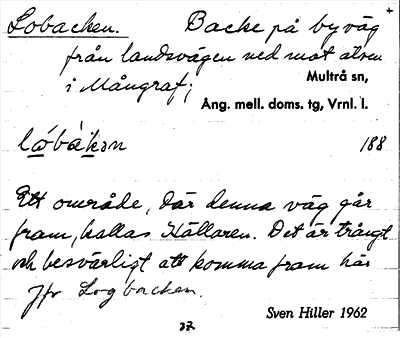 Lobacken. Backe på byväg
från landsvägen ned mot älven
i Mångraf;
Multrå sn,
Ång. mell. doms. tg, Vrnl. l.
188
Ett område, där denna väg går
fram, kallas Källaren. Det är trångt
och besvärligt att komma fram här
Jfr Logbacken.
Sven Hiller 1962